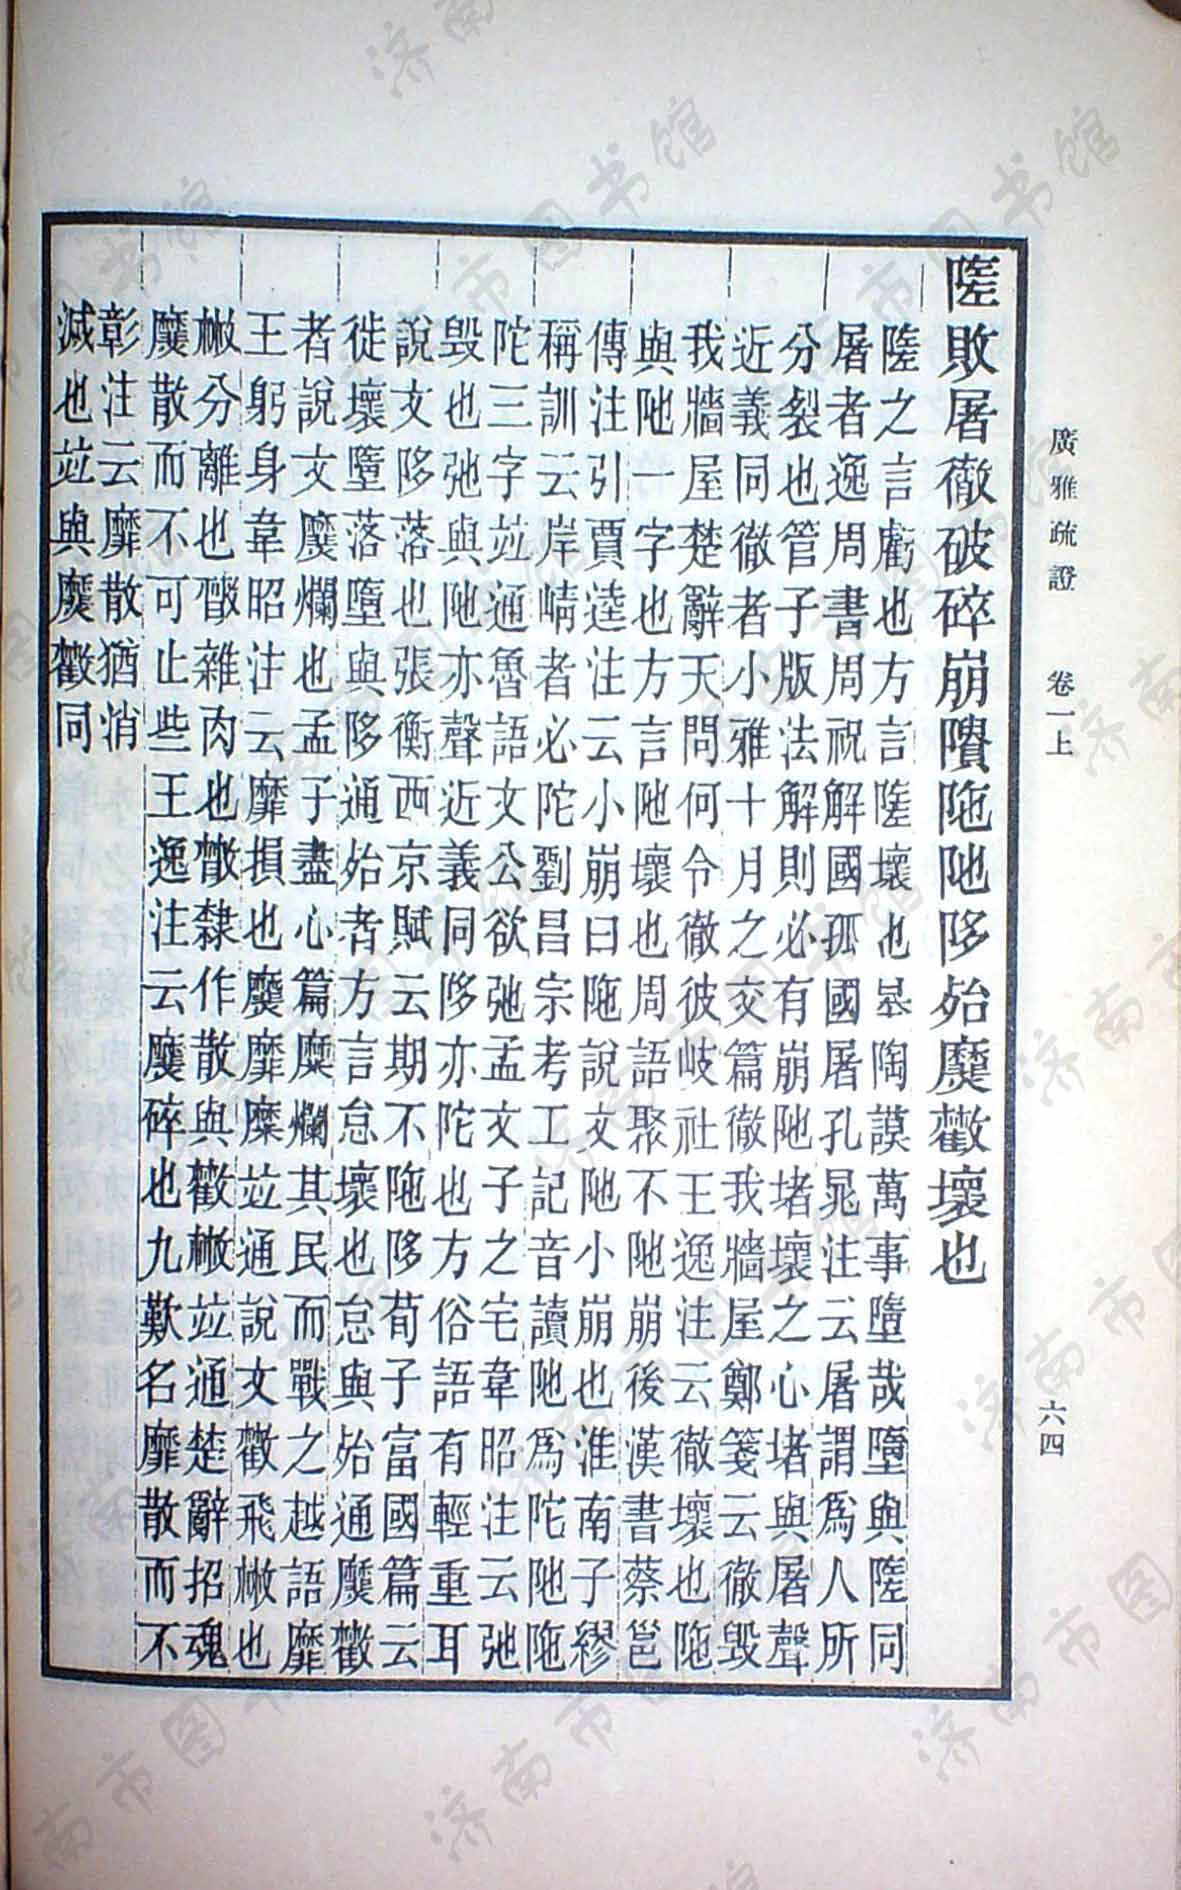 廣雅疏證 卷一上 六四
隓敗屠徹破碎崩隤陁阤陊殆䊳𢿱壞也
隓之言虧也方言隓壞也皋陶謨萬事墮哉墮與隓同
屠者逸周書周祝解國孤國屠孔晁注云屠謂爲人所
分裂也管子版法解則必有崩阤堵壞之心堵與屠聲
近義同徹者小雅十月之交篇徹我牆屋鄭箋云徹毀
我牆屋楚辭天問何令徹彼岐社王逸注云徹壞也陁
與阤一字也方言阤壞也周語聚不阤崩後漢書蔡邕
傳注引賈逵注云小崩曰陁說文阤小崩也淮南子繆
稱訓云岸崝者必陀劉昌宗考工記音讀阤爲陀阤陁
陀三字竝通魯語文公欲弛孟文子之宅韋昭注云弛
毀也弛與阤亦聲近義同陊亦陀也方俗語有輕重耳
說文陊落也張衡西京賦云期不陁陊荀子富國篇云
徙壞墮落墮與陊通殆者方言怠壞也怠與殆通䊳𢿱
者說文䊳爛也孟子盡心篇糜爛其民而戰之越語靡
王躬身韋昭注云靡損也䊳靡糜竝通說文𢿱飛㪚也
㪚分離也𢿱雜肉也𢿱隸作散與𢿱㪚竝通楚辭招魂
䊳散而不可止些王逸注云䊳碎也九歎名靡散而不
彰注云靡散猶消
滅也竝與䊳𢿱同